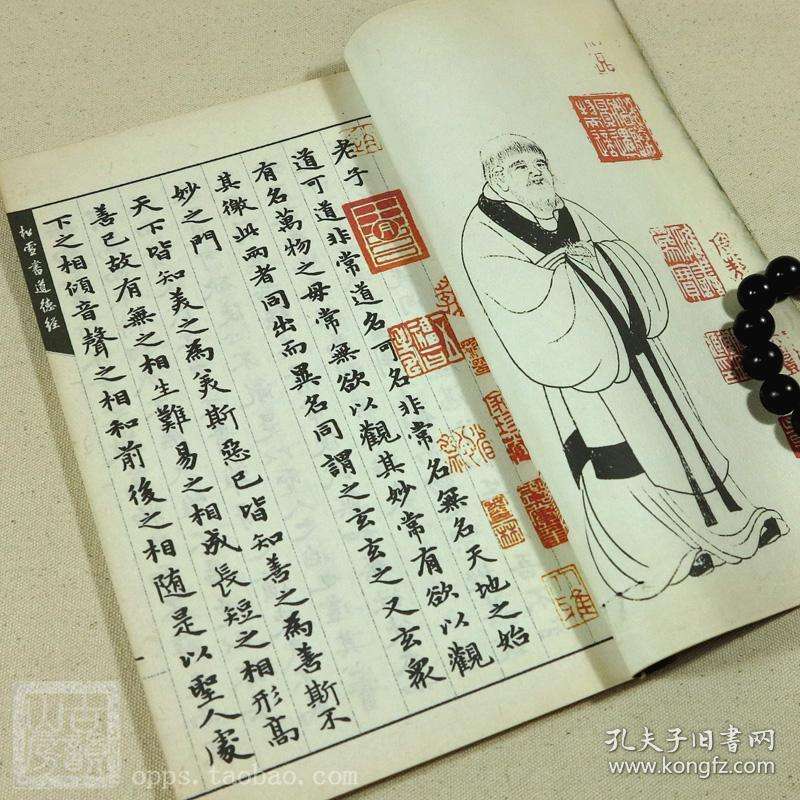 老子
道可道非常道名可名非常名無名天地之始
有名萬物之母常無欲以觀其妙常有欲以觀
其徼此兩者同出而異名同謂之玄玄之又玄衆
妙之門
天下皆知美之為美斯惡已皆知善之為善斯不
善已故有無之相生難易之相成長短之相形高
下之相傾音聲之相和前後之相随是以聖人處
松雪書道德經
opps.taobao.com
孔夫子旧书网
www.kongfz.com